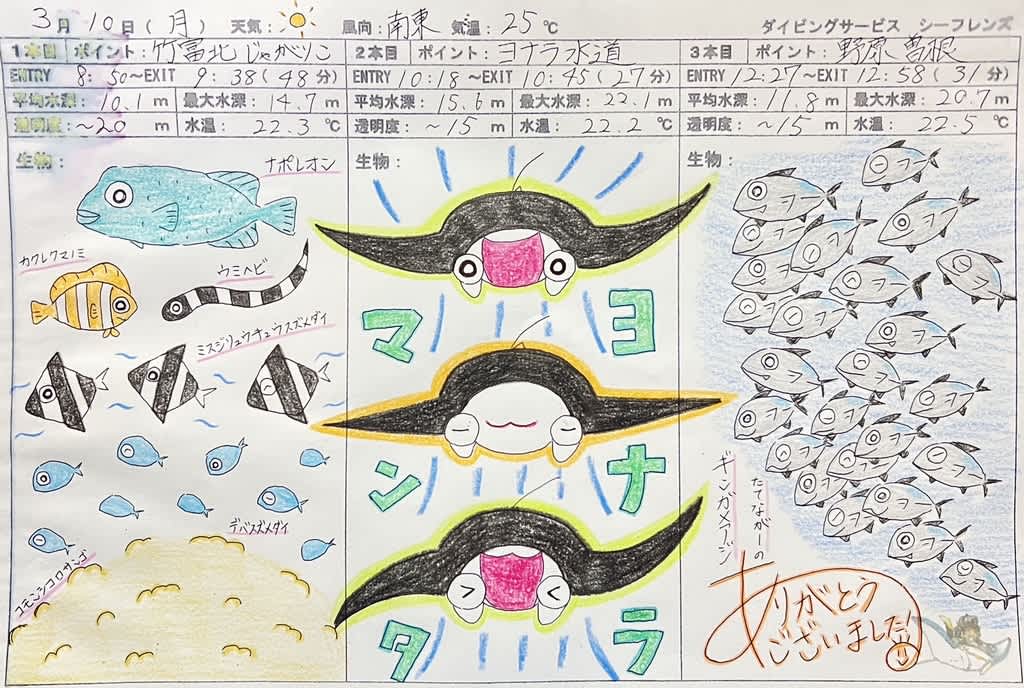 3月10日(月) 天気: 風向:南東 気温:25℃ ダイビングサービス シーフレンズ
1本目 ポイント:竹富北じゃがりこ
ENTRY 8:50~EXIT 9:38(48分)
平均水深:10.1m 最大水深:14.7m
透明度:~20m 水温:22.3℃
生物:
ナポレオン
カクレクマノミ
ウミヘビ
ミスジリュウキュウスズメダイ
デバスズメダイ
コモンシコロサンゴ
2本目 ポイント:ヨナラ水道
ENTRY 10:18~EXIT 10:45(27分)
平均水深:15.6m 最大水深:22.1m
透明度:~15m 水温:22.2℃
生物:
ヨナラ
マンタ
3本目 ポイント:野原曽根
ENTRY 12:27~EXIT 12:58(31分)
平均水深:11.8m 最大水深:20.7m
透明度:~15m 水温:22.5℃
生物:
たてながーの
ギンガメアジ
ありがとう
ございました!!